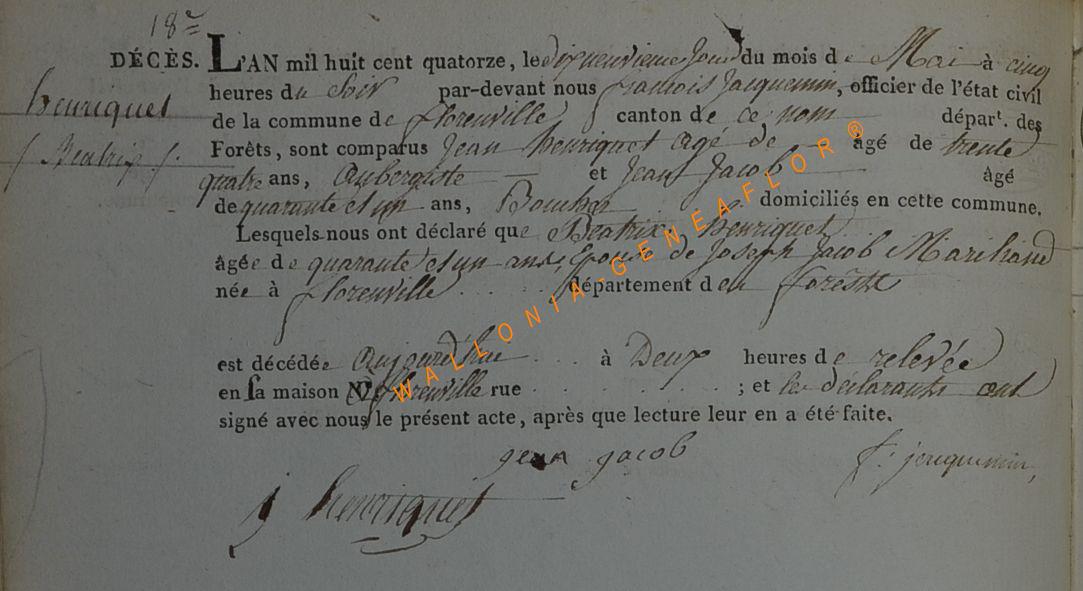 18e
DÉCÈS. L'AN mil huit cent quatorze, le dixneuvieme Jour du mois de Mai à cinq
henriquet
heures du Soir par-devant nous francois Jacquemin, officier de l'état civil
de la commune de florenville canton de ce nom départ. des
/ Beatrix /.
Forêts, sont comparus Jean henriquet agé de - âgé de trente
quatre ans, Aubergiste — et Jean Jacob âgé
de quarante et un ans, Boucher domiciliés en cette commune.
Lesquels nous ont déclaré que Beatrix henriquet
âgée de quarante et un ans, Epouse de Joseph Jacob Marchand
née à florenville département des forêts
est décédée aujourd'hui à Deux heures de relevée
en sa maison florenville rue ; et les déclarants ont
signé avec nous le présent acte, après que lecture leur en a été faite.
jean jacob f. jacquemin,
j henriquet
WALLONIA-GENEAFLOR®